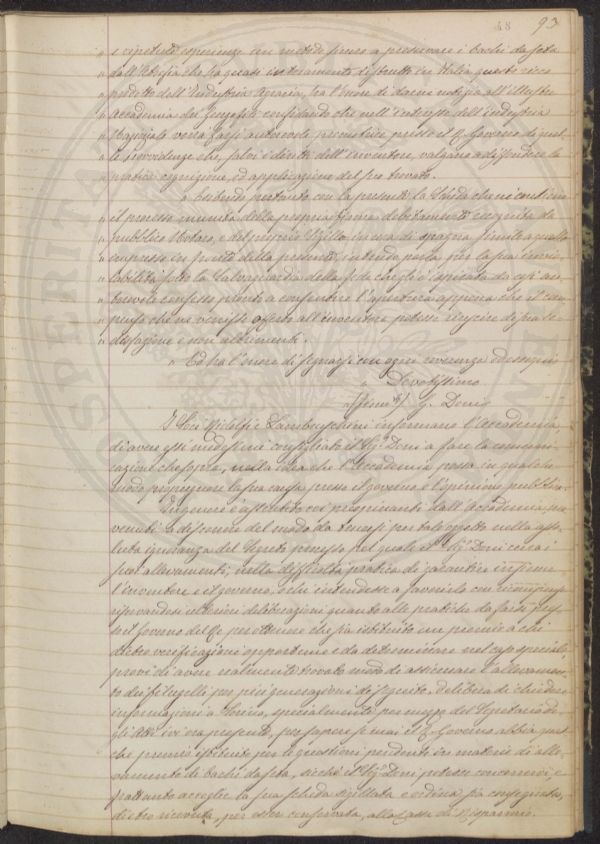 48 93
" e ripetute esperienze un metodo sicuro a preservare i bachi da seta
" dall'Atrofia che ha quasi interamente distrutto in Italia questo ricco
" prodotto dell'Industria Agraria, ha l'onore di darne notizia all'illustre
" Accademia dei Georgofili confidando che nell'interesse dell'industria
" Nazionale vorrà farsi autorevole presso il R. Governo di quel
" le provvidenze che, salvi i diritti dell'inventore, valgano a diffondere la
" pratica cognizione, ed applicazione del suo trovato.
" Esibendo pertanto con la presente la Scheda che ne contiene
" il processo munita della propria firma debitamente recognita da
" pubblico Notaro, e del proprio Sigillo in cera di spagna simile a quello
" impresso in fronte della presente, intende porla per la sua invio
" labilità sotto la Salvaguardia della fede che gli è ispirata da così au
" torevole consesso pronto a consentirne l'apertura appena che il com
" penso che ne venisse offerto all'inventore potesse riuscire di sua so
" disfazione e non altrimenti.
" Ed ha l'onore di segnarsi con ogni reverenza ed ossequio
" Devotissimo
(firmato) G. Doni
I Soci Ridolfi e Lambruschini informano l'Accademia
di avere essi medesimi consigliato il Sig. Doni a fare la comuni
cazione che sopra, nella idea che l'Accademia possa in qualche
modo propugnare la sua causa presso il governo e l'opinione pubblica.
In genere è assentito coi preopinanti dall'Accademia, ma
venuti a discorrere del modo da tenersi per tale oggetto nella asso
luta ignoranza del Segreto processo pel quale il Sig. Doni cura i
suoi allevamenti; nella difficoltà pratica di garantire insieme
l'inventore e il governo, o chi intendesse a favorirlo con ricompense
riservandosi ulteriori deliberazioni quanto alle pratiche da farsi pres
so il Governo del Re per ottenere che sia istituito un premio a chi
dietro verificazioni opportune e da determinare nel caso speciale
provi di avere realmente trovato modo di assicurare l'allevamen
to dei filugelli per più generazioni di seguito, delibera di chiedere
informazioni a Torino, specialmente per mezzo del Segretario de
gli Atti ivi ora presente, per sapere se mai il R. Governo abbia qual
che premio istituito per le questioni pendenti in materia di alle
vamento di bachi da seta, sicché il Sig. Doni potesse concorrervi, e
frattanto accoglie la sua scheda sigillata e ordina sia consegnata,
dietro ricevuta, per esser conservata, alla Cassa di Risparmio.